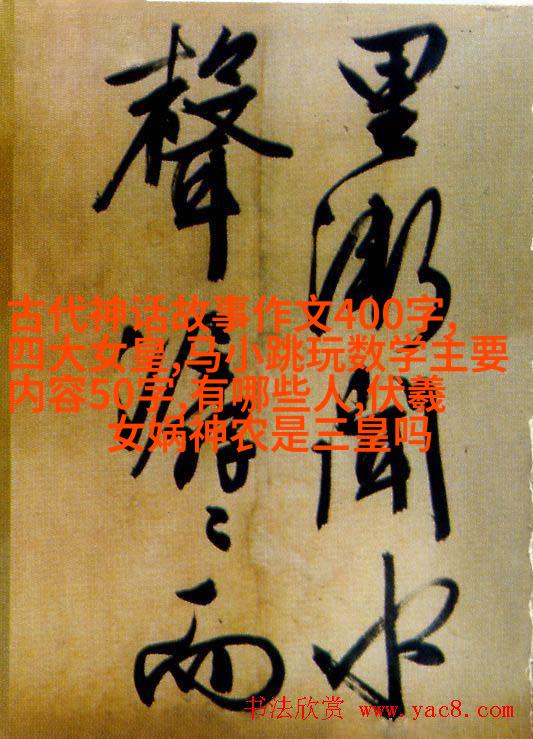 里漸聞水
聲潺〻而
古代神话故事作文400字,
四大女皇,马小跳玩数学主要
内容50字,有哪些人,伏羲
女娲神农是三皇吗
书法欣赏 www.yac8.com